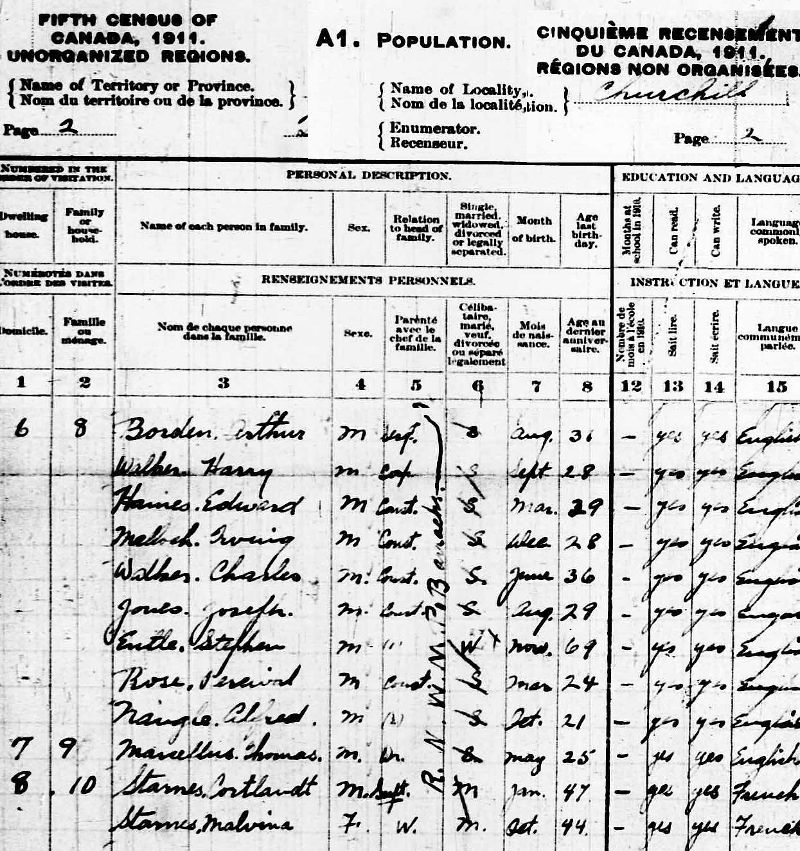 FIFTH CENSUS OF
CANADA, 1911.
UNORGANIZED REGIONS.
A1. POPULATION.
CINQUIÈME RECENSEMENT
DU CANADA, 1911.
RÉGIONS NON ORGANISÉES.
Name of Territory or Province.
Nom du territoire ou de la province.
Name of Locality,
Nom de la localité,
Churchill
Page 2
Enumerator.
Recenseur.
Page 2
NUMBERED IN THE
ORDER OF VISITATION.
PERSONAL DESCRIPTION.
EDUCATION AND LANGUAG
Dwelling house.
Family or house-hold.
Name of each person in family.
Sex.
Relation to head of family.
Single, married, widowed, divorced or legally separated.
Month of birth.
Age last birth-day.
Months at school in 1910.
Can read.
Can write.
Language commonl spoken.
NUMÉROTÉS DANS
L'ORDRE DES VISITES.
RENSEIGNEMENTS PERSONNELS.
INSTRUCTION ET LANGUE
Domicile.
Famille ou ménage.
Nom de chaque personne dans la famille.
Sexe.
Parenté avec le chef de la famille.
Céliba-taire, marié, veuf, divorcée ou séparé légalement
Mois de nais-sance.
Age au dernier anniver-saire.
Nombre de mois à l'école en 1910.
Sait lire.
Sait écrire.
Langue communém parlée.
1 2 3 4 5 6 7 8 12 13 14 15
6 8 Borden. Arthur M Serg't. S Aug. 31 – yes yes English
Walker. Harry M Corp S Sept 28 – yes yes English
Haines. Edward M Const. S Mar. 29 – yes yes English
Malloch. Irving M Const. S Dec 28 – yes yes English
Walker. Charles M. Const. S. June 36 – yes yes English
Jones. Joseph. M. Const S Aug. 29 – yes yes English
Stephen M " W Nov. 69 – yes yes English
Rose. Percival M Const S Mar 24 – yes yes English
Alfred. M " S Oct. 21 – yes yes English
7 9 Marcellus. Thomas. M. Dr. S May 25 – yes yes English
8 10 Starnes. Cortlandt M. Supt. M Jan. 47 – yes yes French
Starnes, Malvina F. W. M. Oct. 44 – yes yes French
R. N. W. M. P. Barracks